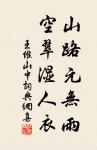 山路元無雨
空翠濕人衣
王維山中詞典網集